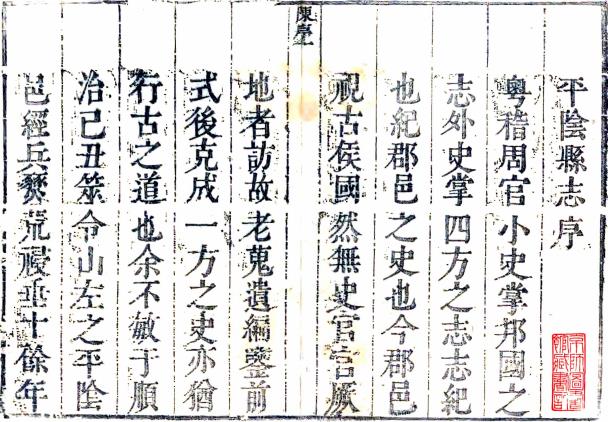 平陰縣志序
粵稽周官小史掌邦國之
志外史掌四方之志志紀
也紀郡邑之史也今郡邑
視古侯國然無史官官厥
地者訪故老蒐遺編鑒前
式後克成一方之史亦猶
行古之道也余不敏于順
治己丑筮令山左之平陰
邑經兵燹荒祲垂十餘年
陳序